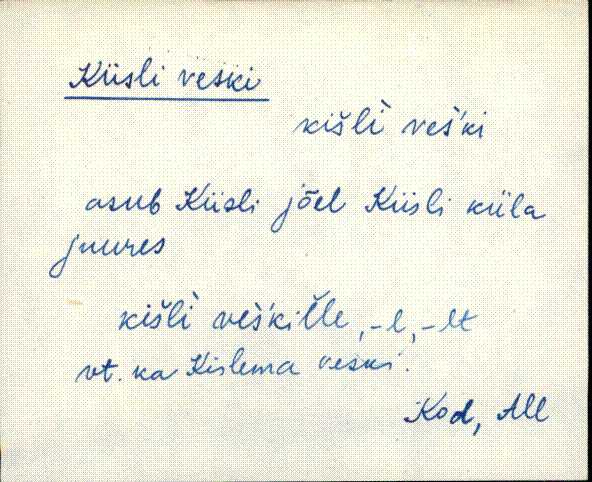 Kiisli veski
kišlì veš'ki
asub Kiisli jõel Kiisli küla
juures
kišlì veš'kille, -l, -lt
vt. ka Kislema veski.
Kod, All